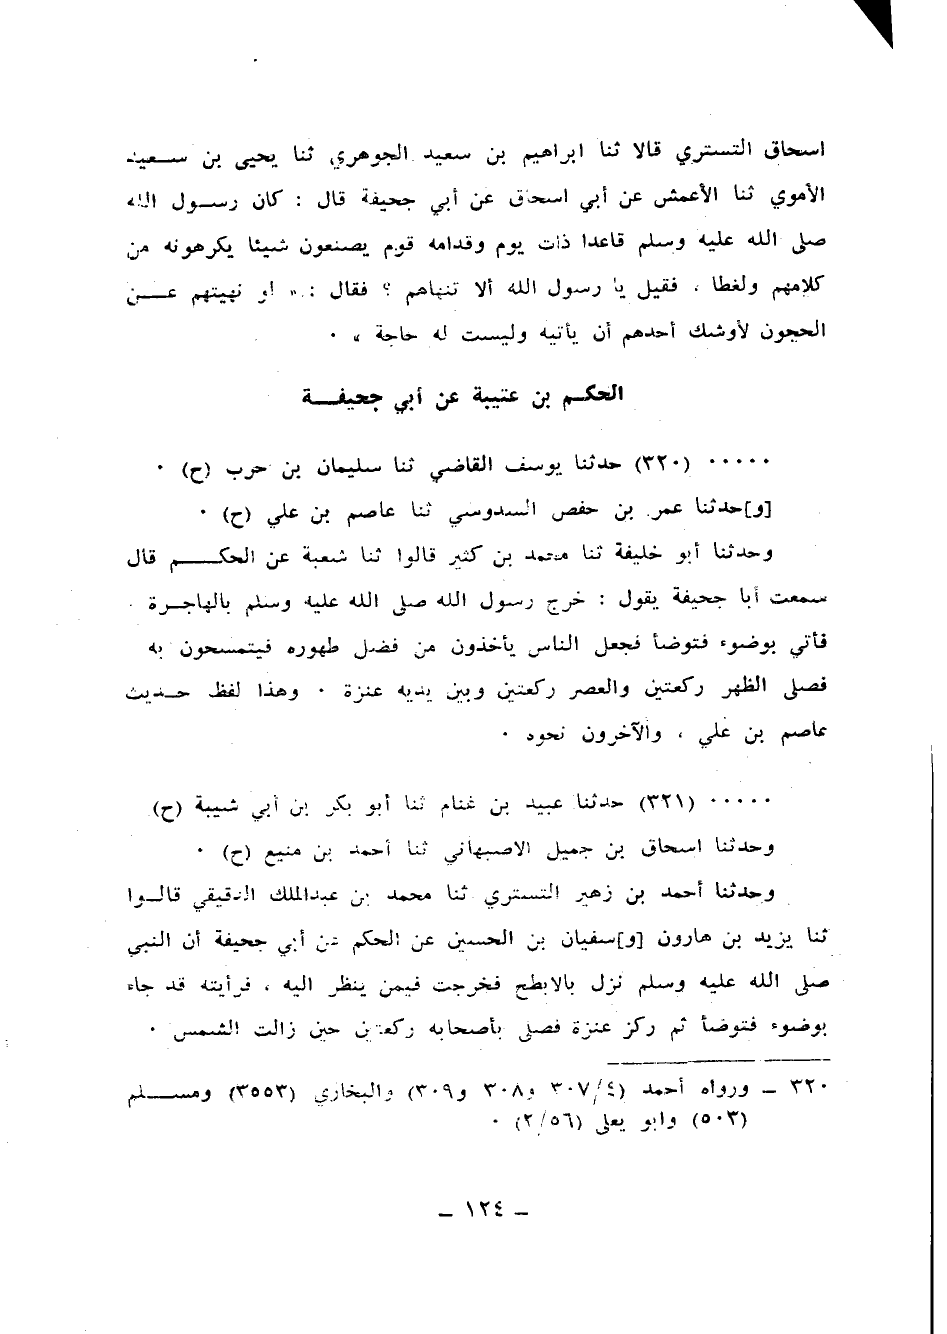 اسحاق التستري قالا ثنا ابراهيم بن سعيد الجوهري ثنا يحيى بن ســعيد
الأموي ثنا الأعمش عن أبي اسحاق عن أبي جحيفة قال : كان رســول الله
صلى الله عليه وسلم قاعدا ذات يوم وقدامه قوم يصنعون شيئا يكرهونه من
كلامهم ولغطا ، فقيل يا رسول الله ألا تنهاهم ؟ فقال : « لو نهيتهم عــن
الحجون لأوشك أحدهم أن يأتيه وليست له حاجة » ٠
الحكــم بن عتيبة عن أبي جحيفــة
٠٠٠٠٠ (٣٢٠) حدثنا يوسف القاضي ثنا سليمان بن حرب (ح) ٠
[و]حدثنا عمر بن حفص السدوسي ثنا عاصم بن علي (ح) ٠
وحدثنا أبو خليفة ثنا محمد بن كثير قالوا ثنا شعبة عن الحكــم قال
سمعت أبا جحيفة يقول : خرج رسول الله صلى الله عليه وسلم بالهاجــرة ٠
فأتي بوضوء فتوضأ فجعل الناس يأخذون من فضل طهوره فيتمسحون به
فصلى الظهر ركعتين والعصر ركعتين وبين يديه عنزة ٠ وهذا لفظ حــديث
عاصم بن علي ، والآخرون نحوه ٠
٠٠٠٠٠ (٣٢١) حدثنا عبيد بن غنام ثنا أبو بكر بن أبي شيبة (ح)
وحدثنا اسحاق بن جميل الاصبهاني ثنا أحمد بن منيع (ح) ٠
وحدثنا أحمد بن زهير التستري ثنا محمد بن عبدالملك الدقيقي قالــوا
ثنا يزيد بن هارون [و]سفيان بن الحسين عن الحكم عن أبي جحيفة أن النبي
صلى الله عليه وسلم نزل بالابطح فخرجت فيمن ينظر اليه ، فرأيته قد جاء
بوضوء فتوضأ ثم ركز عنزة فصلى بأصحابه ركعتين حين زالت الشمس ٠
٣٢٠ ــ ورواه أحمد (٣٠٧/٤ و٣٠٨ و٣٠٩) والبخاري (٣٥٥٣) ومســلم
(٥٠٣) وابو يعلى (٢/٥٦) ٠
ــ ١٢٤ ــ